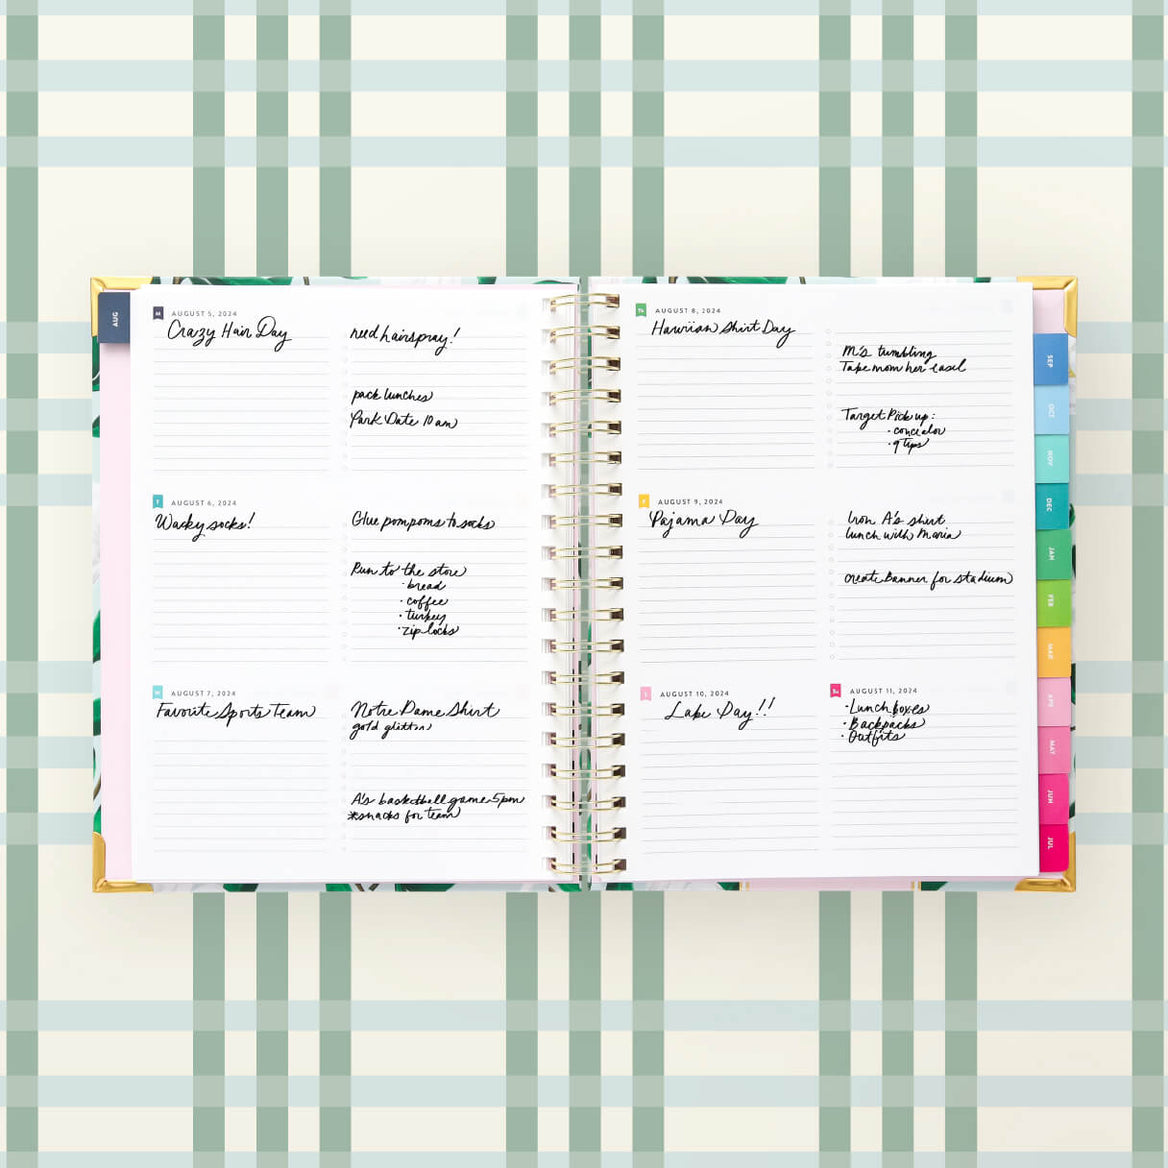 AUG
M
AUGUST 5, 2024
Crazy Hair Day
need hairspray!
pack lunches
Park Date 10 am
T
AUGUST 6, 2024
Wacky socks!
Glue pompoms to socks
Run to the store
· bread
· coffee
· turkey
· zip locks
W
AUGUST 7, 2024
Favorite Sports Team
Notre Dame Shirt
gold glitter
A's basketball game 5pm
*snacks for team
Th
AUGUST 8, 2024
Hawiian Shirt Day
M's tumbling
Take mom her easel
Target Pick up:
· concealor
· q tips
F
AUGUST 9, 2024
Pajama Day
Iron A's shirt
lunch with Maria
create Banner for stadium
S
AUGUST 10, 2024
Lake Day!!
Su
AUGUST 11, 2024
· Lunch boxes
· Backpacks
· Outfits
SEP
OCT
NOV
DEC
JAN
FEB
MAR
APR
MAY
JUN
JUL